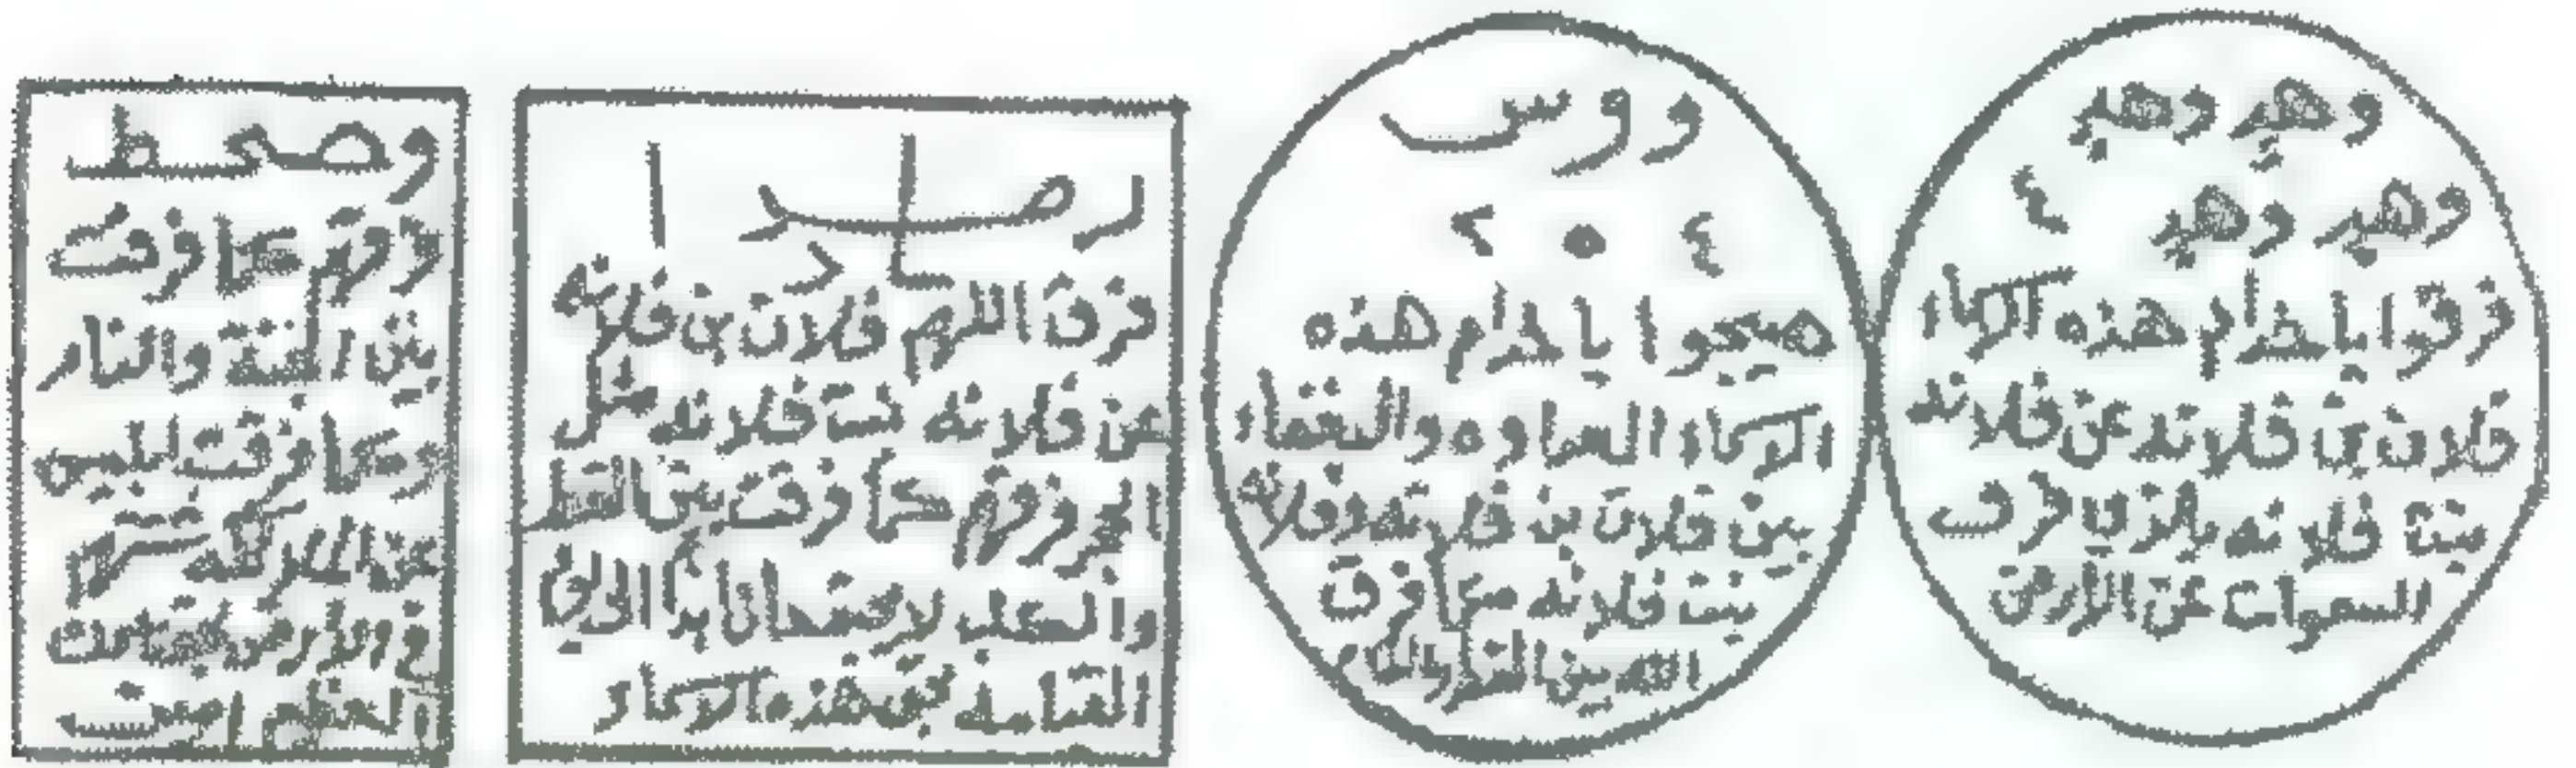 وهيد وهيد
وهيد وهيد ٤
فرقوا يا خدام هذه الاسماء
فلان بن فلانه عن فلانه
بنت فلانه بالذي فرق
السموات عن الارض
و و س
٤ ٥ ٢
هيجوا يا خدام هذه
الاسماء العداوه والبغضاء
بين فلان بن فلانه وفلانه
بنت فلانه كما فرق
الله بين
فرق اللهم فلان بن فلانه
عن فلانه بنت فلانه مثل
وفرقهم كما فرقت بين القط
والكلب لا يجتمعان ابدا الى يوم
القيامه بحق هذه الاسماء
وصحط
وفرقهم كما فرقت
بين الجنة والنار
وكما فرقت ابليس
عن الملائكه شتتهم
في الارض بحق
العظيم امين